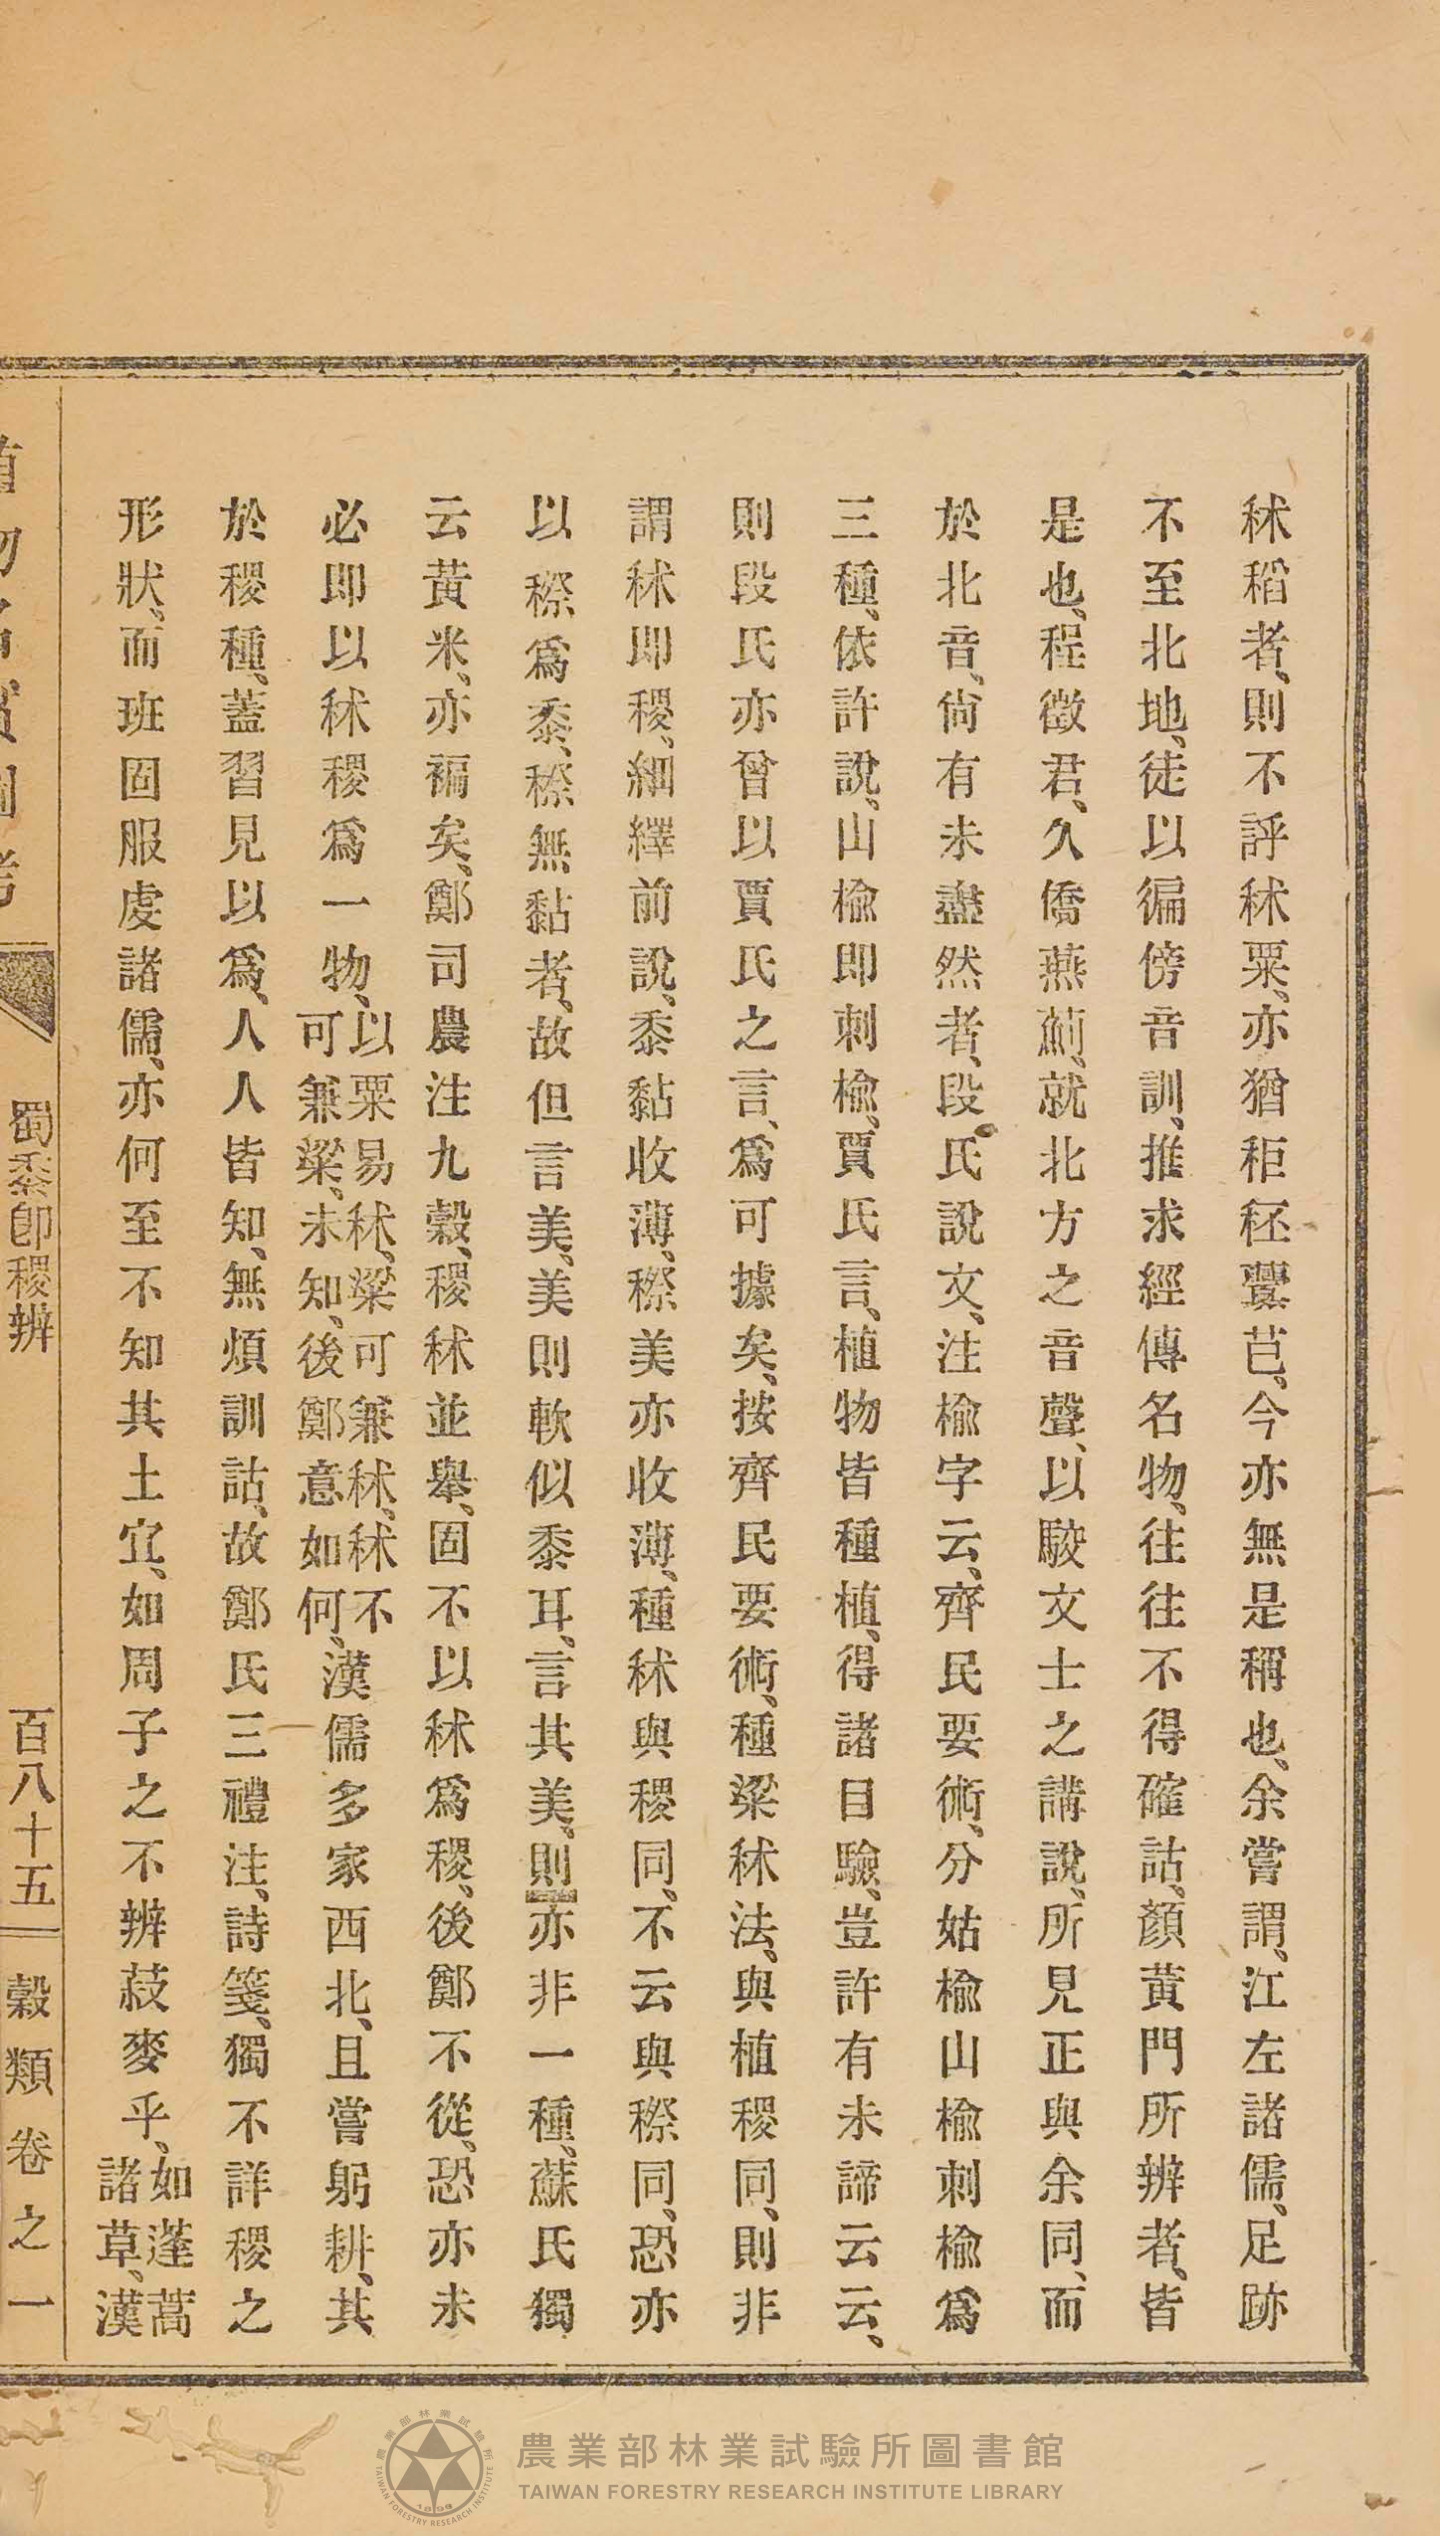 秫稻者、則不評秫粟、亦猶秬秠穈芑、今亦無是稱也、余嘗謂、江左諸儒、足跡
不至北地、徒以徧傍音訓、推求經傳名物、往往不得確詁、顏黃門所辨者、皆
是也、程徵君、久僑燕薊、就北方之音聲、以駮文士之講說、所見正與余同、而
於北音、尙有未盡然者、段氏說文、注楡字云、齊民要術、分姑楡山楡刺楡爲
三種、依許說、山楡即刺楡、賈氏言、植物皆種植、得諸目驗、豈許有未諦云云、
則段氏亦曾以賈氏之言、爲可據矣、按齊民要術、種粱秫法、與植稷同、則非
謂秫即稷、細繹前說、黍黏收薄、穄美亦收薄、種秫與稷同、不云與穄同、恐亦
以穄爲黍、穄無黏者、故但言美、美則軟似黍耳、言其美、則亦非一種、蘇氏獨
云黃米、亦褊矣、鄭司農注九穀、稷秫並舉、固不以秫爲稷、後鄭不從、恐亦未
必即以秫稷爲一物、以粟易秫、粱可兼秫、秫不可兼粱、未知、後鄭意如何、漢儒多家西北、且嘗躬耕、其
於稷種、蓋習見以爲、人人皆知、無煩訓詁、故鄭氏三禮注、詩箋、獨不詳稷之
形狀、而班固服虔諸儒、亦何至不知其土宜、如周子之不辨菽麥乎、如蓬蒿諸草、漢
蜀黍卽稷辨
百八十五
穀類卷之一
農業部林業試驗所圖書館
TAIWAN FORESTRY RESEARCH INSTITUTE LIBRARY